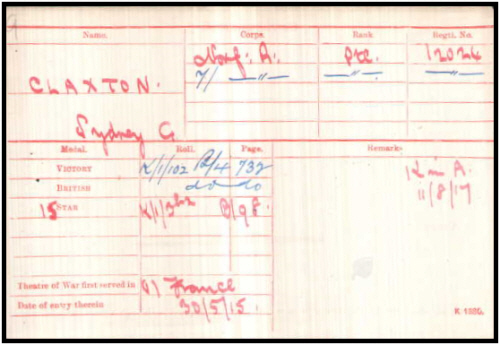 Name. Corps. Rank Regtl. No.
Norf: R. Pte. 12024
CLAXTON. 7/ —"— —"— —"—
Sydney G.
Medal. Roll. Page. Remarks.
VICTORY K/1/102 B/4 732 K in A.
BRITISH do do 11/8/17
15 STAR K/1/3 B/98.
Theatre of War first served in (1) France
Date of entry therein 30/5/15.
K 1380.